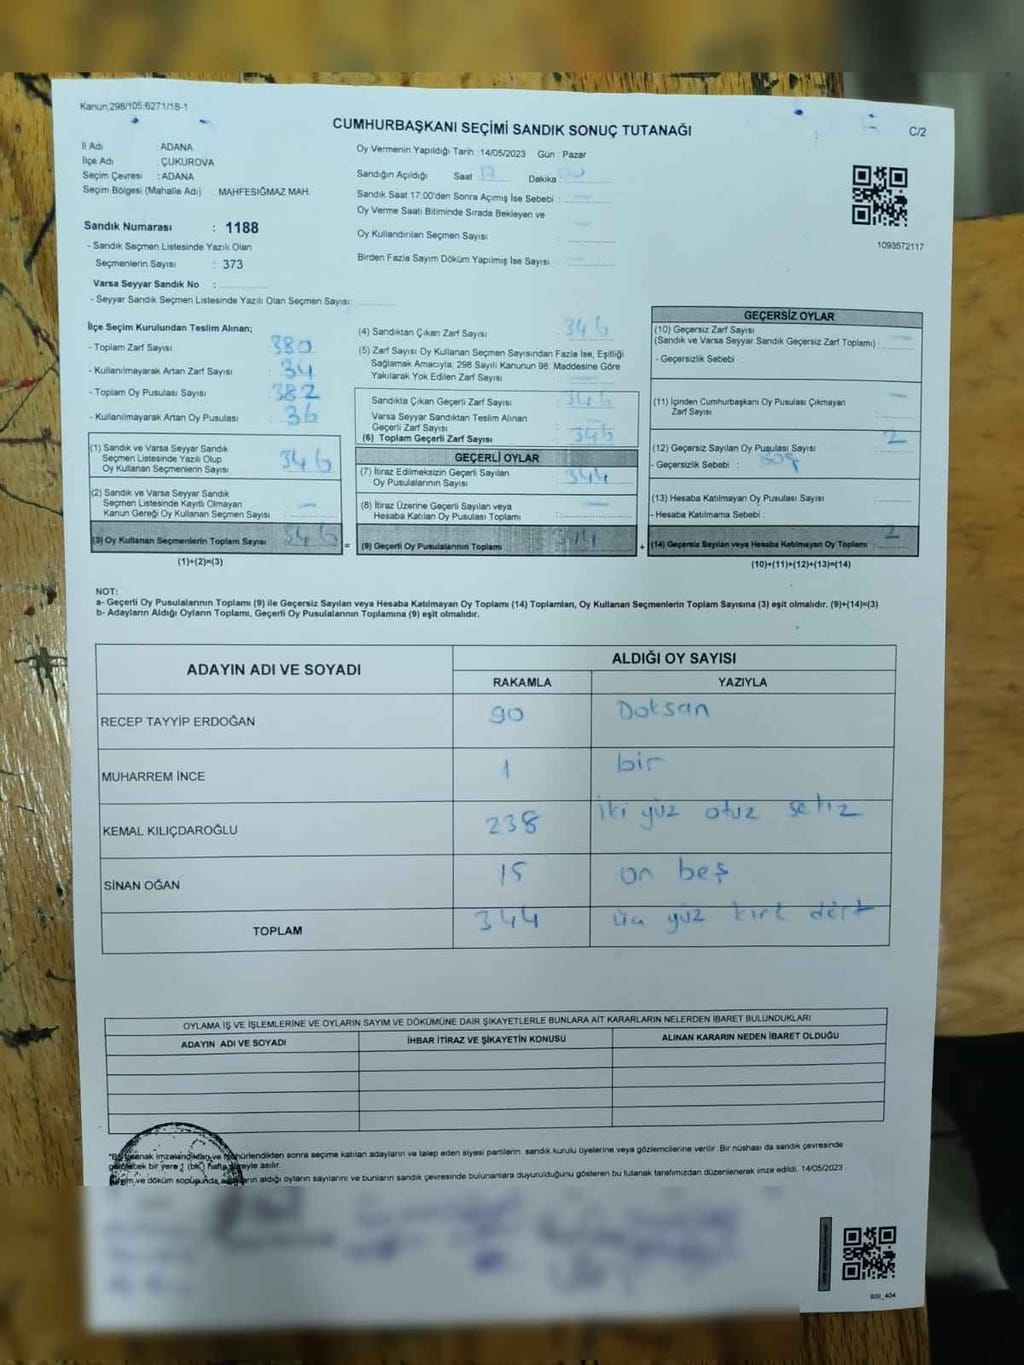 Kanun.298/105;6271/18-1
CUMHURBAŞKANI SEÇİMİ SANDIK SONUÇ TUTANAĞI
C/2
İl Adı : ADANA
İlçe Adı : ÇUKUROVA
Seçim Çevresi : ADANA
Seçim Bölgesi (Mahalle Adı) : MAHFESIĞMAZ MAH.
Sandık Numarası : 1188
- Sandık Seçmen Listesinde Yazılı Olan
Seçmenlerin Sayısı : 373
Varsa Seyyar Sandık No :
- Seyyar Sandık Seçmen Listesinde Yazılı Olan Seçmen Sayısı:
Oy Vermenin Yapıldığı Tarih :14/05/2023 Gün : Pazar
Sandığın Açıldığı Saat : 17 Dakika :
Sandık Saat 17.00'den Sonra Açımış İse Sebebi : —
Oy Verme Saati Bitiminde Sırada Bekleyen ve
Oy Kullandırılan Seçmen Sayısı :
Birden Fazla Sayım Döküm Yapılmış İse Sayısı :
1093572117
İlçe Seçim Kurulundan Teslim Alınan;
- Toplam Zarf Sayısı : 380
- Kullanılmayarak Artan Zarf Sayısı : 34
- Toplam Oy Pusulası Sayısı : 382
- Kullanılmayarak Artan Oy Pusulası : 36
(1) Sandık ve Varsa Seyyar Sandık
Seçmen Listesinde Yazılı Olup
Oy Kullanan Seçmenlerin Sayısı : 346
(2) Sandık ve Varsa Seyyar Sandık
Seçmen Listesinde Kayıtlı Olmayan
Kanun Gereği Oy Kullanan Seçmen Sayısı : —
(3) Oy Kullanan Seçmenlerin Toplam Sayısı : 346
(1)+(2)=(3)
=
(4) Sandıktan Çıkan Zarf Sayısı : 346
(5) Zarf Sayısı Oy Kullanan Seçmen Sayısından Fazla İse, Eşitliği
Sağlamak Amacıyla; 298 Sayılı Kanunun 98. Maddesine Göre
Yakılarak Yok Edilen Zarf Sayısı : —
Sandıkta Çıkan Geçerli Zarf Sayısı : 346
Varsa Seyyar Sandıktan Teslim Alınan
Geçerli Zarf Sayısı : —
(6) Toplam Geçerli Zarf Sayısı : 346
GEÇERLİ OYLAR
(7) İtiraz Edilmeksizin Geçerli Sayılan
Oy Pusulalarının Sayısı : 344
(8) İtiraz Üzerine Geçerli Sayılan veya
Hesaba Katılan Oy Pusulası Toplamı : —
(9) Geçerli Oy Pusulalarının Toplamı : 344
+
GEÇERSİZ OYLAR
(10) Geçersiz Zarf Sayısı
(Sandık ve Varsa Seyyar Sandık Geçersiz Zarf Toplamı) : —
- Geçersizlik Sebebi :
(11) İçinden Cumhurbaşkanı Oy Pusulası Çıkmayan
Zarf Sayısı : —
(12) Geçersiz Sayılan Oy Pusulası Sayısı : 2
- Geçersizlik Sebebi :
(13) Hesaba Katılmayan Oy Pusulası Sayısı :
- Hesaba Katılmama Sebebi :
(14) Geçersiz Sayılan veya Hesaba Katılmayan Oy Toplamı : 2
(10)+(11)+(12)+(13)=(14)
NOT:
a- Geçerli Oy Pusulalarının Toplamı (9) ile Geçersiz Sayılan veya Hesaba Katılmayan Oy Toplamı (14) Toplamları, Oy Kullanan Seçmenlerin Toplam Sayısına (3) eşit olmalıdır. (9)+(14)=(3)
b- Adayların Aldığı Oyların Toplamı, Geçerli Oy Pusulalarının Toplamına (9) eşit olmalıdır.
ADAYIN ADI VE SOYADI
ALDIĞI OY SAYISI
RAKAMLA YAZIYLA
RECEP TAYYİP ERDOĞAN 90 Doksan
MUHARREM İNCE 1 bir
KEMAL KILIÇDAROĞLU 238 iki yüz otuz sekiz
SİNAN OĞAN 15 on beş
TOPLAM 344 üç yüz kırk dört
OYLAMA İŞ VE İŞLEMLERİNE VE OYLARIN SAYIM VE DÖKÜMÜNE DAİR ŞİKAYETLERLE BUNLARA AİT KARARLARIN NELERDEN İBARET BULUNDUKLARI
ADAYIN ADI VE SOYADI İHBAR İTİRAZ VE ŞİKAYETİN KONUSU ALINAN KARARIN NEDEN İBARET OLDUĞU
imzalandıktan ve mühürlendikten sonra seçime katılan adayların ve talep eden siyasi partilerin sandık kurulu üyelerine veya gözlemcilerine verilir. Bir nüshası da sandık çevresinde
bir yere 1 (bir) hafta süreyle asılır.
ve döküm sonucunda adayların aldığı oyların sayılarını ve bunların sandık çevresinde bulunanlara duyurulduğunu gösteren bu tutanak tarafımızdan düzenlenerek imza edildi. 14/05/2023
SSI_404